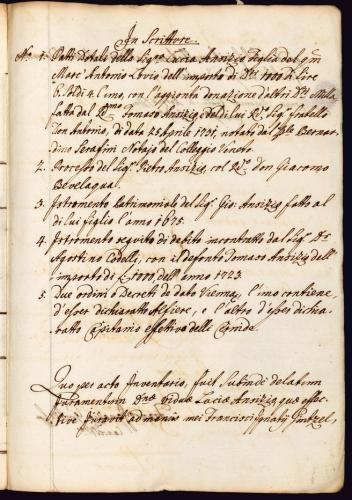 In Scritture.
No. 1. Patti Dotali della Sigra Lucia Ansizio figlia del qm
Marc' Antonio Lovio dell' importo di Dti 1000 a Lire
6: e Sdi 4: l'uno, con l'aggionta donazione d'altri Dti Mila
fatta dal Rdmo Tomaso Ansizio, e dal di lui Rdo Sigr fratello
Don Antonio, di dato 25 Aprile 1701, notato dal Sr Bernar=
dino Serafini Notajo del Colleggio Veneto.
2. Processo del Sigr Pietro Ansizio, col Rdo Don Giacomo
Bevelaqua.
3. Istromento Patrimoniale del Sigr Gio: Ansizio fatto al
di lui figlio l'anno 1675.
4. Istromento seguito di debito incontratto dal Sigr Dr
Agostino Codelli, con il defonto Tomaso Ansizio dell'
importo di f 1000, dell' anno 1723.
5. Due ordini o Decreti de dato Vienna, l'uno contiene,
d'esser dichiarato Alfiere, e l'altro d'esser dichia=
rato Capitanio effettivo delle Cernide.
Quo per acto Inventario, fuit subinde delatum
Juramentum Dnae Viduae Luciae Ansizio, quae effec=
tive juravit ad manus mei Francisci Ignatij Gintzel,